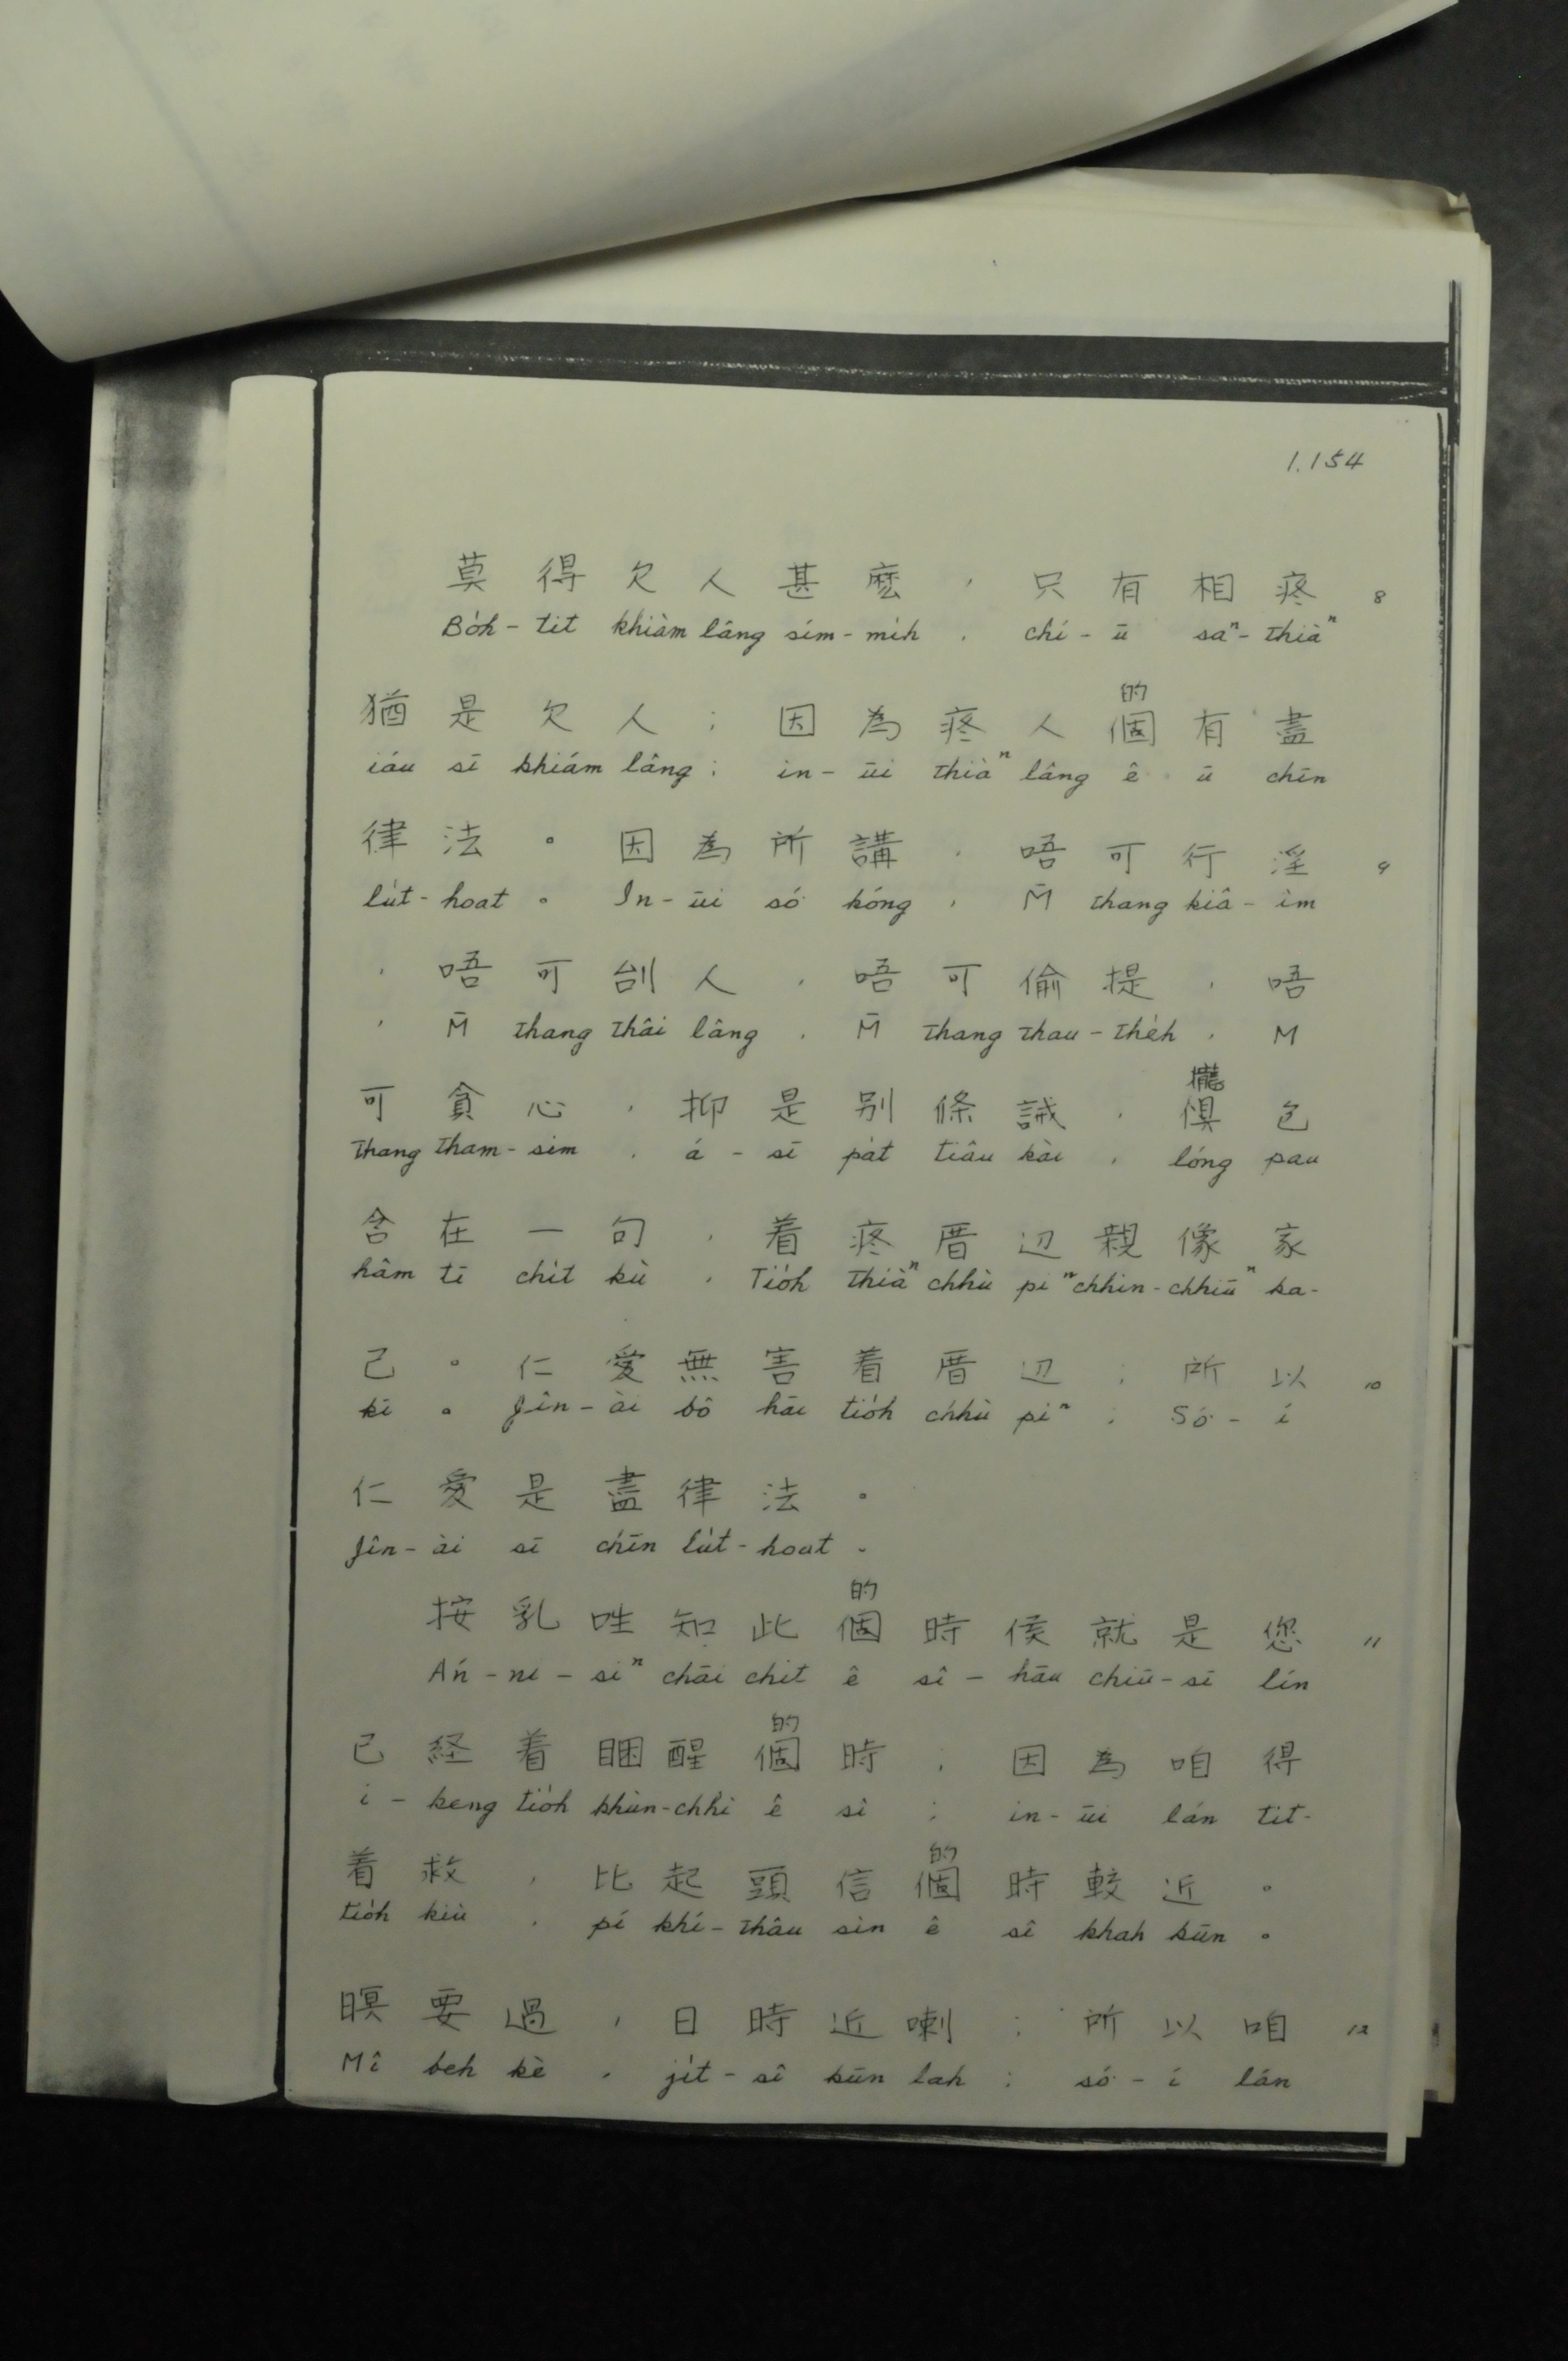 1.154
莫得欠人甚麽，只有相疼 8
Bo̍h-tit khiàm lâng sím-mih, chí-ū saⁿ-thiàⁿ
的
猶是欠人；因為疼人個有盡
iáu sī khiám lâng; in-ūi thiàⁿ lâng ê ū chīn
律法。因為所講，唔可行淫 9
lu̍t-hoat。In-ūi só͘ kóng, M̄ thang kiâ-îm
，唔可刣人，唔可偷提，唔
, M̄ thang thâi lâng, M̄ thang thau-the̍h, M
攏
可貪心，抑是别條誡，慣包
thang tham-sim, á-sī pa̍t tiâu kài, lóng pau
含在一句，着疼厝边親像家
hâm tī chi̍t kù, Tio̍h thiàⁿ chhù piⁿ chhin-chhiūⁿ ka-
己。仁愛無害着厝边；所以 10
kī。Jîn-ài bô hāi tio̍h chhù piⁿ; Só͘-í
仁愛是盡律法。
Jîn-ài sī chīn lu̍t-hoat.
的
按乳甡知此個時候就是您 11
Án-ni-siⁿ chāi chit ê sî-hāu chiū-sī lín
的
已経着睏醒個時；因為咱得
í-keng tio̍h khùn-chhí ê sî; in-ūi lán tit-
的
着救，比起頭信個時較近。
tio̍h kiù, pí khí-thâu sìn ê sî khah kūn。
暝要過，日時近喇；所以咱 12
Mî beh kè, ji̍t-sî kūn lah; só͘-í lán